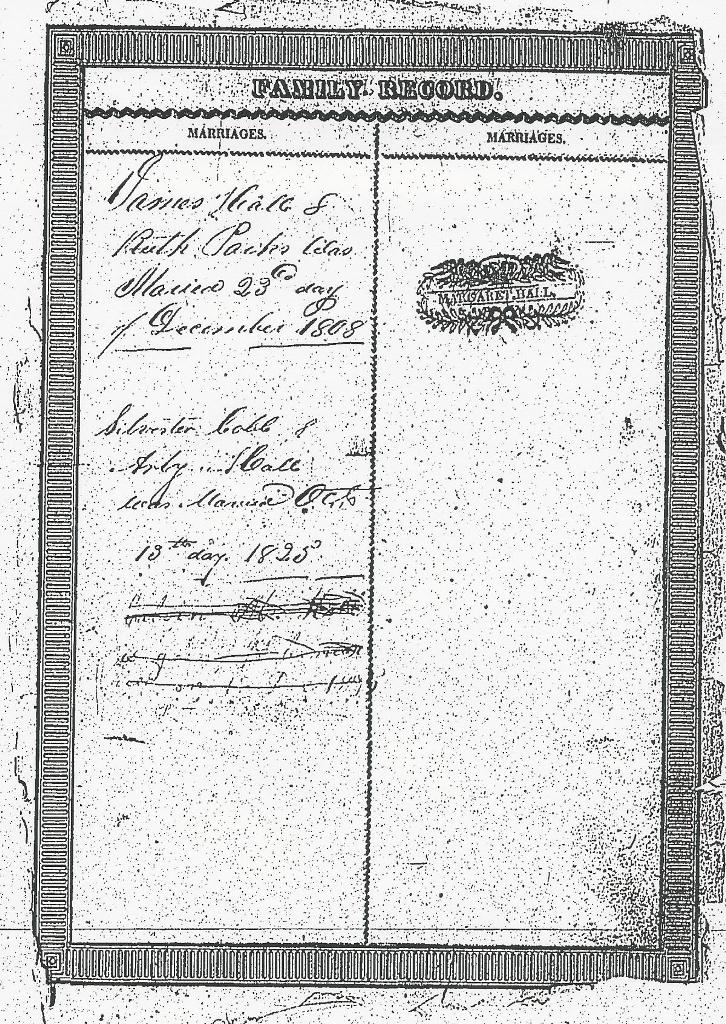 FAMILY RECORD.
MARRIAGES.
James Hall &
Ruth Parks Was
Maried 23d day
of December 1808
Silvester Cobb &
Arby Hall
was Maried Oct
13th day 1825
MARRIAGES.
MARGARET HALL.